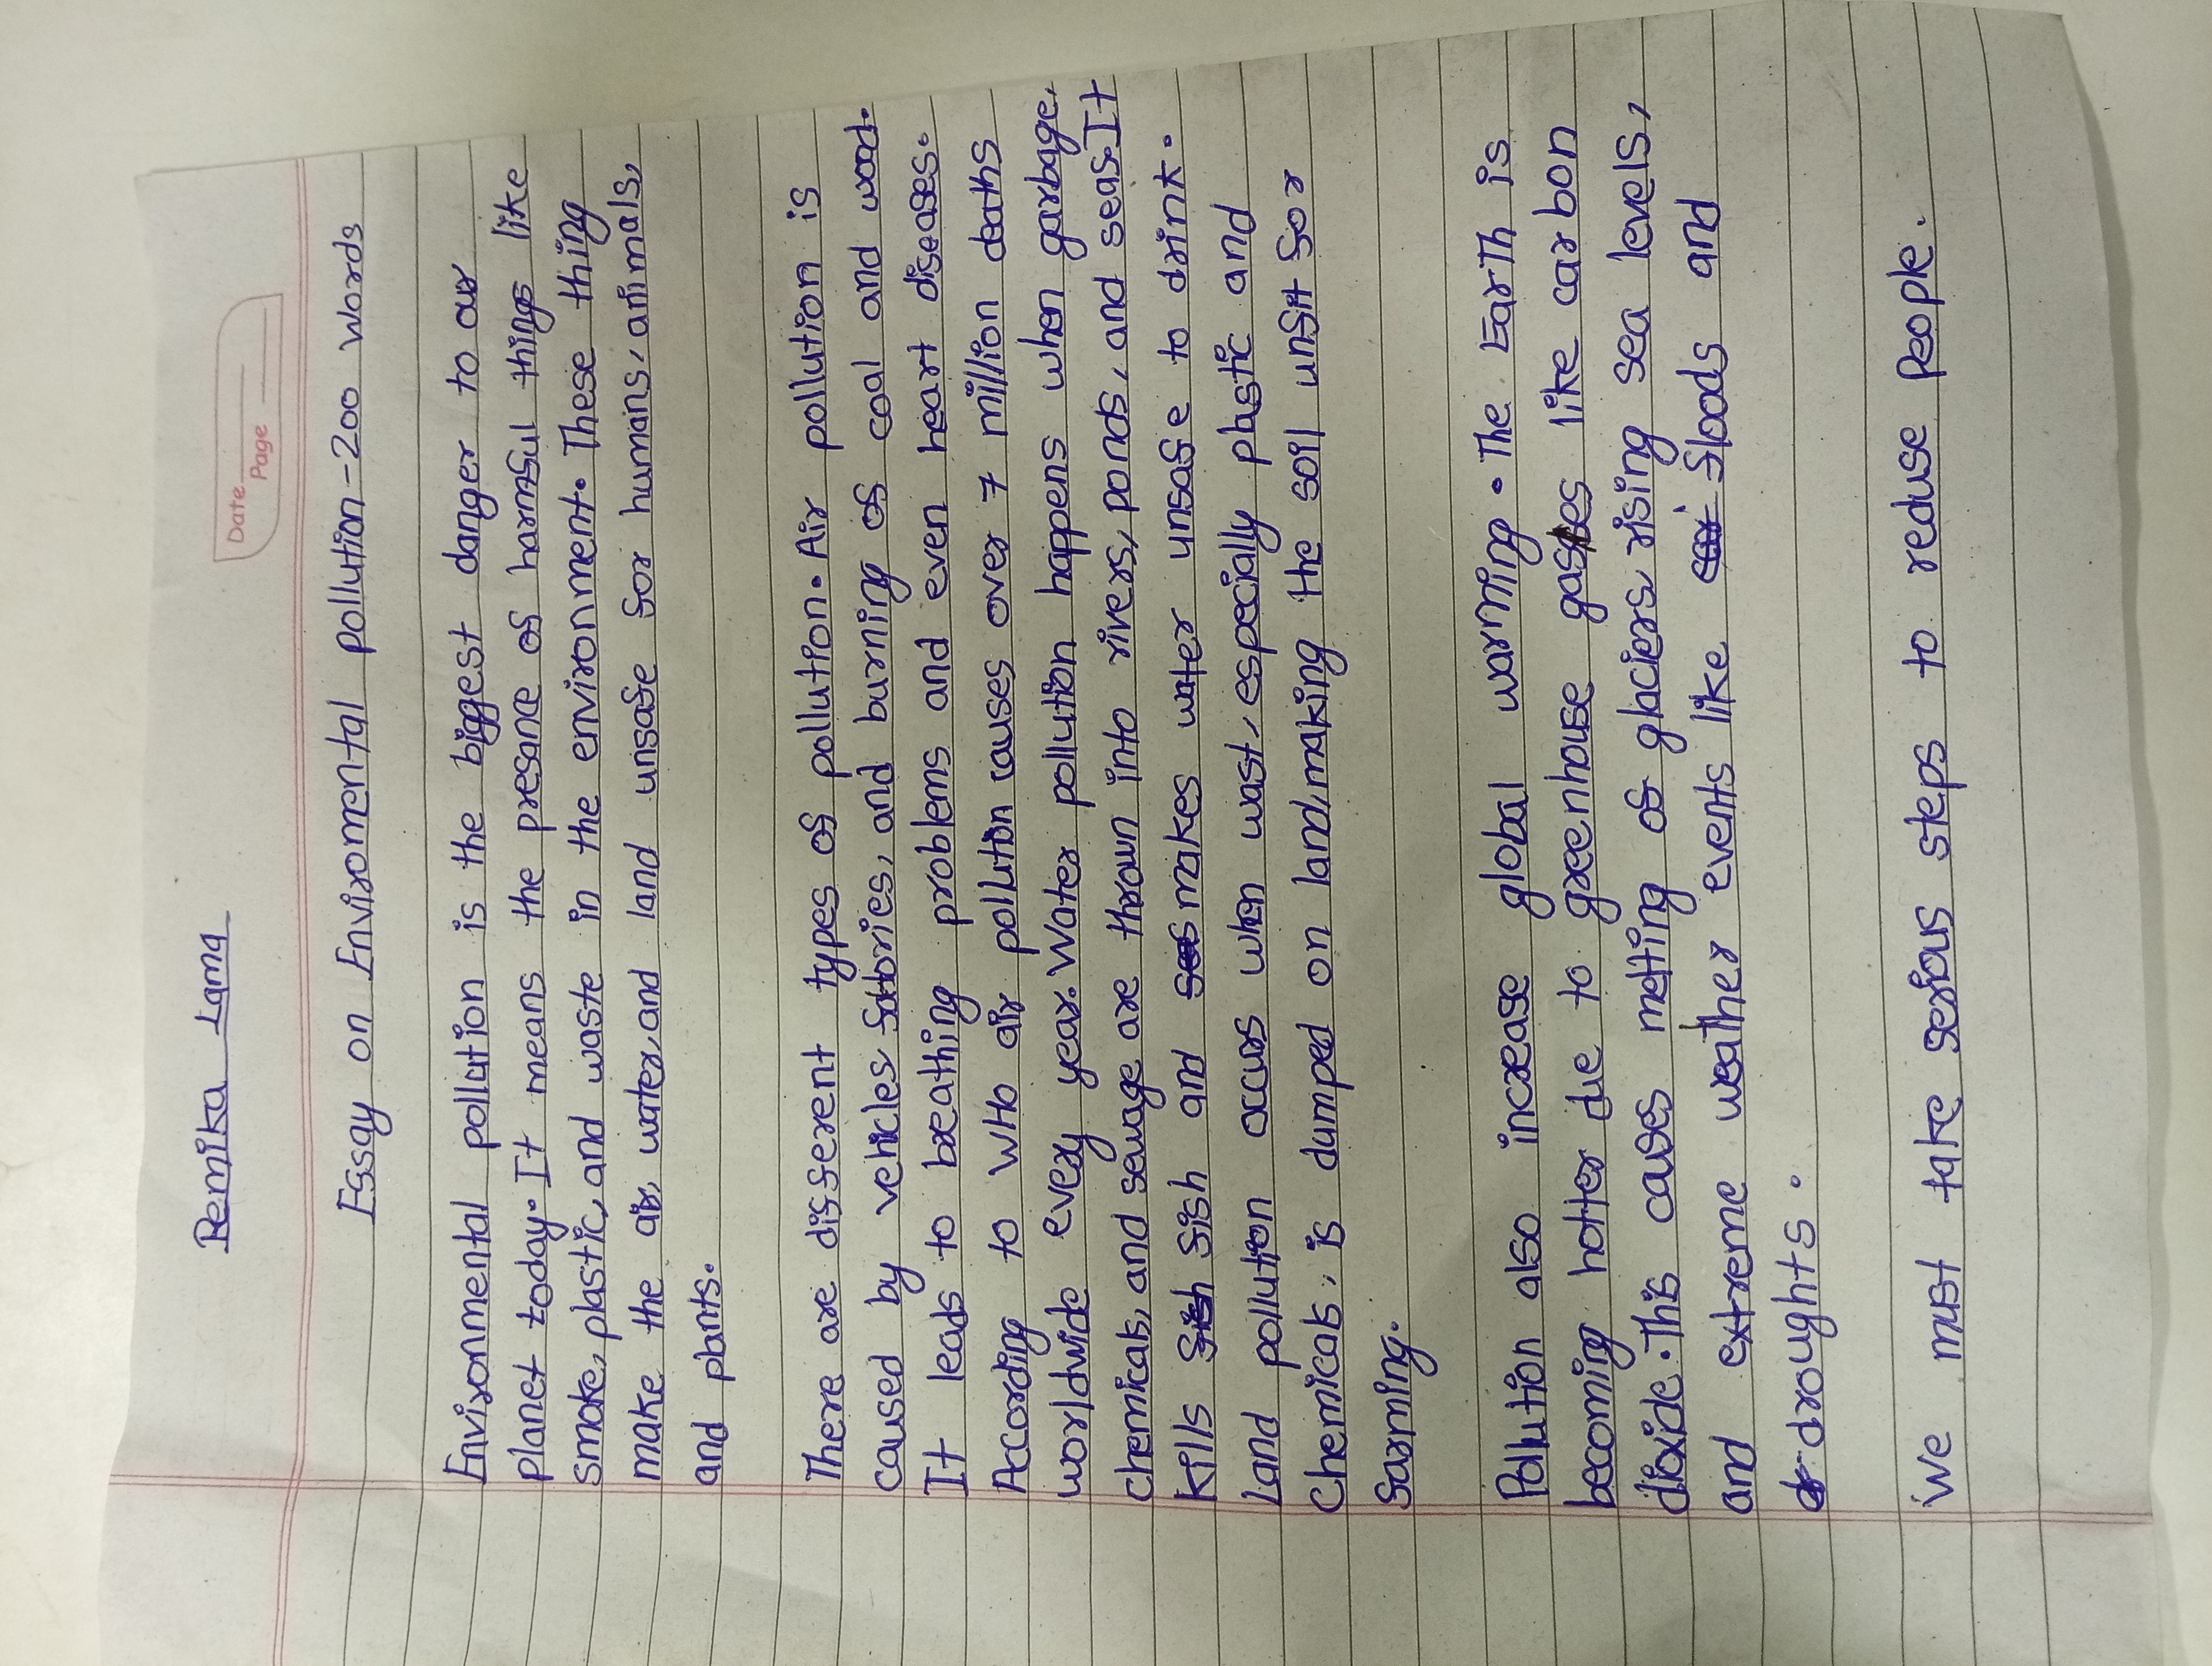 Remika Lama
Date
Page
Essay on Enviromental pollution-200 words
Environmental pollution is the biggest danger to our
planet today. It means the presance of harmful things like
smoke, plastic, and waste in the environment. These thing
make the air, water, and land unsafe for humans, animals,
and plants.
There are different types of pollution. Air pollution is
caused by vehicles fabories, and burning of coal and wood.
It leads to breathing problems and even heart diseases.
According to WHO air pollution causes over 7 million deaths
worldwide every year. Water pollution happens when garbage,
chemicals, and sewage are thrown into rivers, ponds, and seas. It
kills fish and makes water unsafe to drink.
Land pollution occurs when wast, especially plastic and
chemicals, is dumped on land, making the soil unfit for
farming.
Pollution also increase global warming. The Earth is
becoming hotter due to greenhouse gases like carbon
dioxide. This causes melting of glaciers, rising sea levels,
and extreme weather events like floods and
droughts.
We must take serious steps to reduse people.